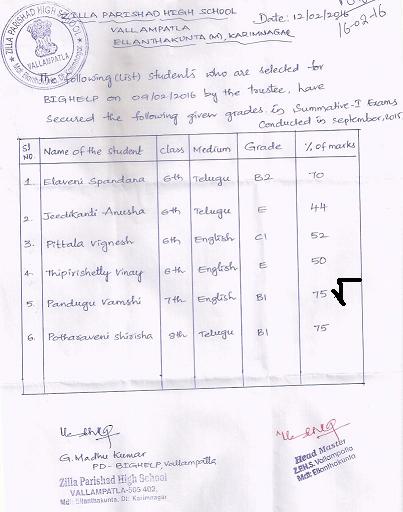 ZILLA PARISHAD HIGH SCHOOL
VALLAMPATLA
ELLANTHAKUNTA (M), KARIMNAGAR
Date: 12/02/2016
16-02-16
ZILLA PARISHAD HIGH SCHOOL
VALLAMPATLA
The following (List) students who are selected for
BIGHELP on 09/02/2016 by the trustee, have
Secured the following given grades. in Summative-I Exams
Conducted in september, 2015
Sl NO. Name of the student Class Medium Grade % of marks
1. Elaveni Spandana 6th Telugu B2 70
2. Jeedikanti Anusha 6th Telugu E 44
3. Pittala Vignesh 6th English C1 52
4. Thipirishetty Vinay 6th English E 50
5. Pandugu Vamshi 7th English B1 75 √
6. Potharaveni shirisha 8th Telugu B1 75
G. Madhu Kumar
PD - BIGHELP, Vallampatla
Zilla Parishad High School
VALLAMPATLA-505 402,
Mdl: Ellanthakunta, Dt: Karimnagar
Head Master
Z.P.H.S. Vallampatla
Mdl: Ellanthakunta